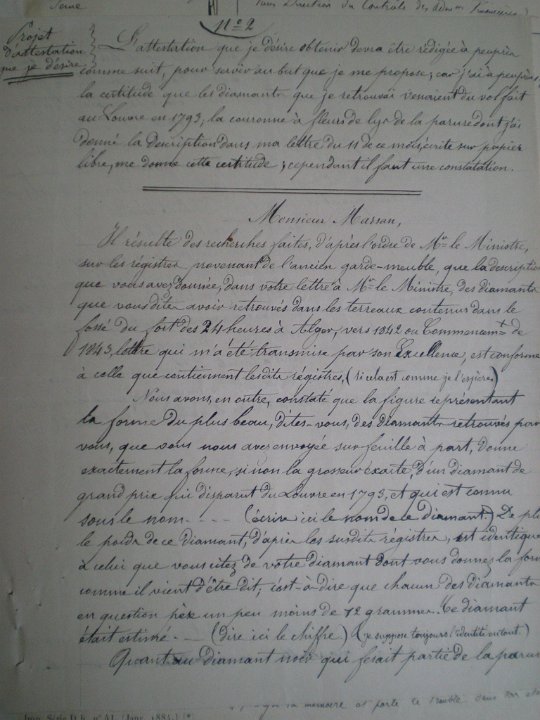 Seine
Sous Direction du Contrôle des
N° 2
Projet
d'attestation
que je désire
L'attestation que je désire obtenir devra être rédigée à peu près
comme suit, pour servir au but que je me propose; car j'ai à peu près
la certitude que les diamants que je retrouvai venaient du vol fait
au Louvre en 1793; la couronne à fleurs de lys de la parure dont j'ai
donné la description dans ma lettre du 11 de ce mois, écrite sur papier
libre, me donne cette certitude; cependant il faut une constatation.
Monsieur Marsan,
Il résulte des recherches faites, d'après l'ordre de Mr. le Ministre,
sur les registres provenant de l'ancien garde-meuble, que la description
que vous avez donnée, dans votre lettre à Mr. le Ministre, des diamants
que vous dites avoir retrouvés dans les terreaux contenus dans le
fossé du fort des 24 heures à Alger, vers 1842 ou Commencemt. de
1843, lettre qui m'a été transmise par son Excellence, est conforme
à celle que contiennent lesdits registres, (si cela est comme je l'espère)
Nous avons, en outre, constaté que la figure représentant
la forme du plus beau, dites-vous, des diamants retrouvés par
vous, que vous nous avez envoyée sur feuille à part, donne
exactement la forme, si non la grosseur exacte, d'un diamant de
grand prix qui disparut du Louvre en 1793, et qui est connu
sous le nom - - - - (écrire ici le nom de ce diamant) De plus
le poids de ce diamant d'après les susdits registres, est identique
à celui que vous citez de votre diamant dont vous donnez la forme
comme il vient d'être dit; c'est-à-dire que chacun des diamants
en question pèse un peu moins de 12 grammes. Ce diamant
était estimé - - - (dire ici le chiffre) (je suppose toujours l'identité existant)
Quant au diamant noir qui ferait partie de la parure
mémoire et porte le trouble dans
Imp. Série D h. n° 41. (Janv. 1884.)